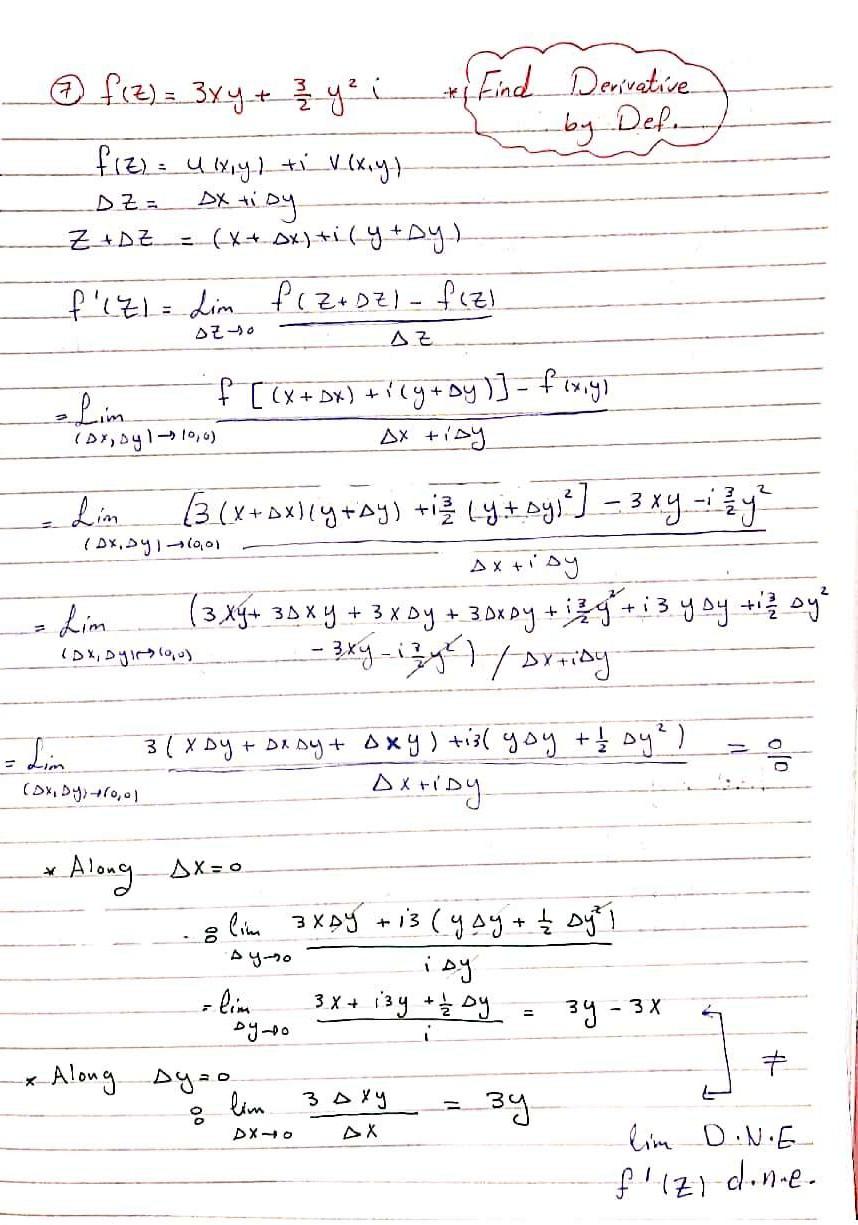 ⑦ f(z) = 3xy + 3/2 y² i
* Find Derivative
by Def.
f(z) = u(x,y) + i v(x,y)
Δz = Δx + iΔy
z + Δz = (x + Δx) + i(y + Δy)
f'(z) = Lim Δz→0 f(z+Δz) - f(z) / Δz
= Lim (Δx,Δy)→(0,0) f[(x+Δx) + i(y+Δy)] - f(x,y) / Δx + iΔy
= Lim (Δx,Δy)→(0,0) [3(x+Δx)(y+Δy) + i 3/2 (y+Δy)²] - 3xy - i 3/2 y² / Δx + iΔy
= Lim (Δx,Δy)→(0,0) (3xy + 3Δxy + 3xΔy + 3ΔxΔy + i 3/2 y² + i3yΔy + i 3/2 Δy²
- 3xy - i 3/2 y²) / Δx + iΔy
= Lim (Δx,Δy)→(0,0) 3(xΔy + ΔxΔy + Δxy) + i3(yΔy + 1/2 Δy²) / Δx + iΔy = 0/0
* Along Δx = 0
: lim Δy→0 3xΔy + i3(yΔy + 1/2 Δy²) / iΔy
= lim Δy→0 3x + i3y + 1/2 Δy / i = 3y - 3x
≠
* Along Δy = 0
: lim Δx→0 3Δxy / Δx = 3y
lim D.N.E
f'(z) d.n.e.